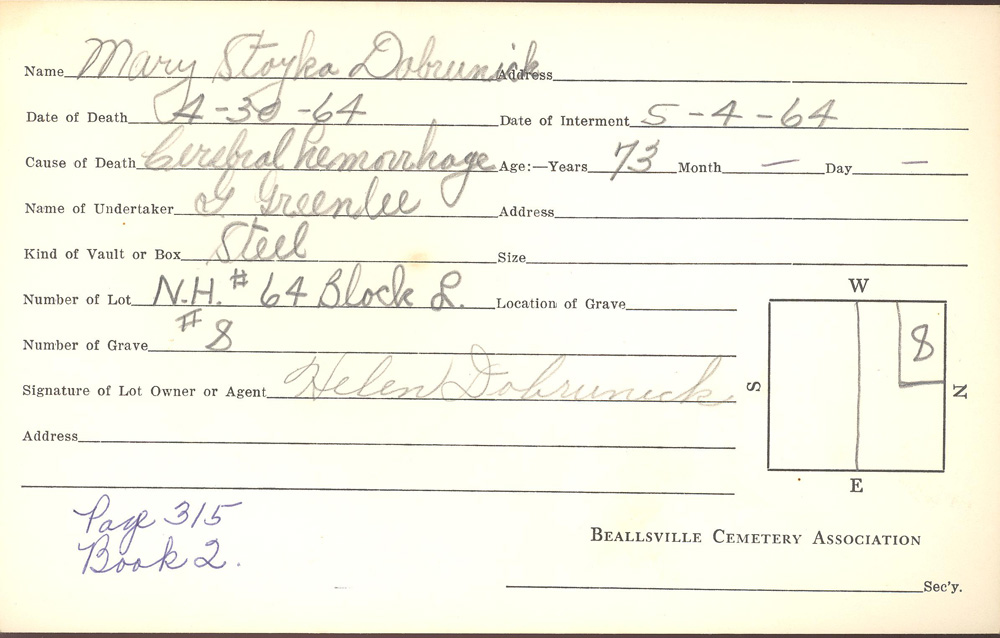 Name Mary Stoyka Dobrunick Address
Date of Death 4-30-64 Date of Interment 5-4-64
Cause of Death Cerebral hemorrhage Age:—Years 73 Month — Day —
Name of Undertaker G Greenlee Address
Kind of Vault or Box Steel Size
Number of Lot N.H. # 64 Block L. Location of Grave
Number of Grave # 8
Signature of Lot Owner or Agent Helen Dobrunick
Address
W
8
S
N
E
Page 315
Book 2.
BEALLSVILLE CEMETERY ASSOCIATION
Sec'y.